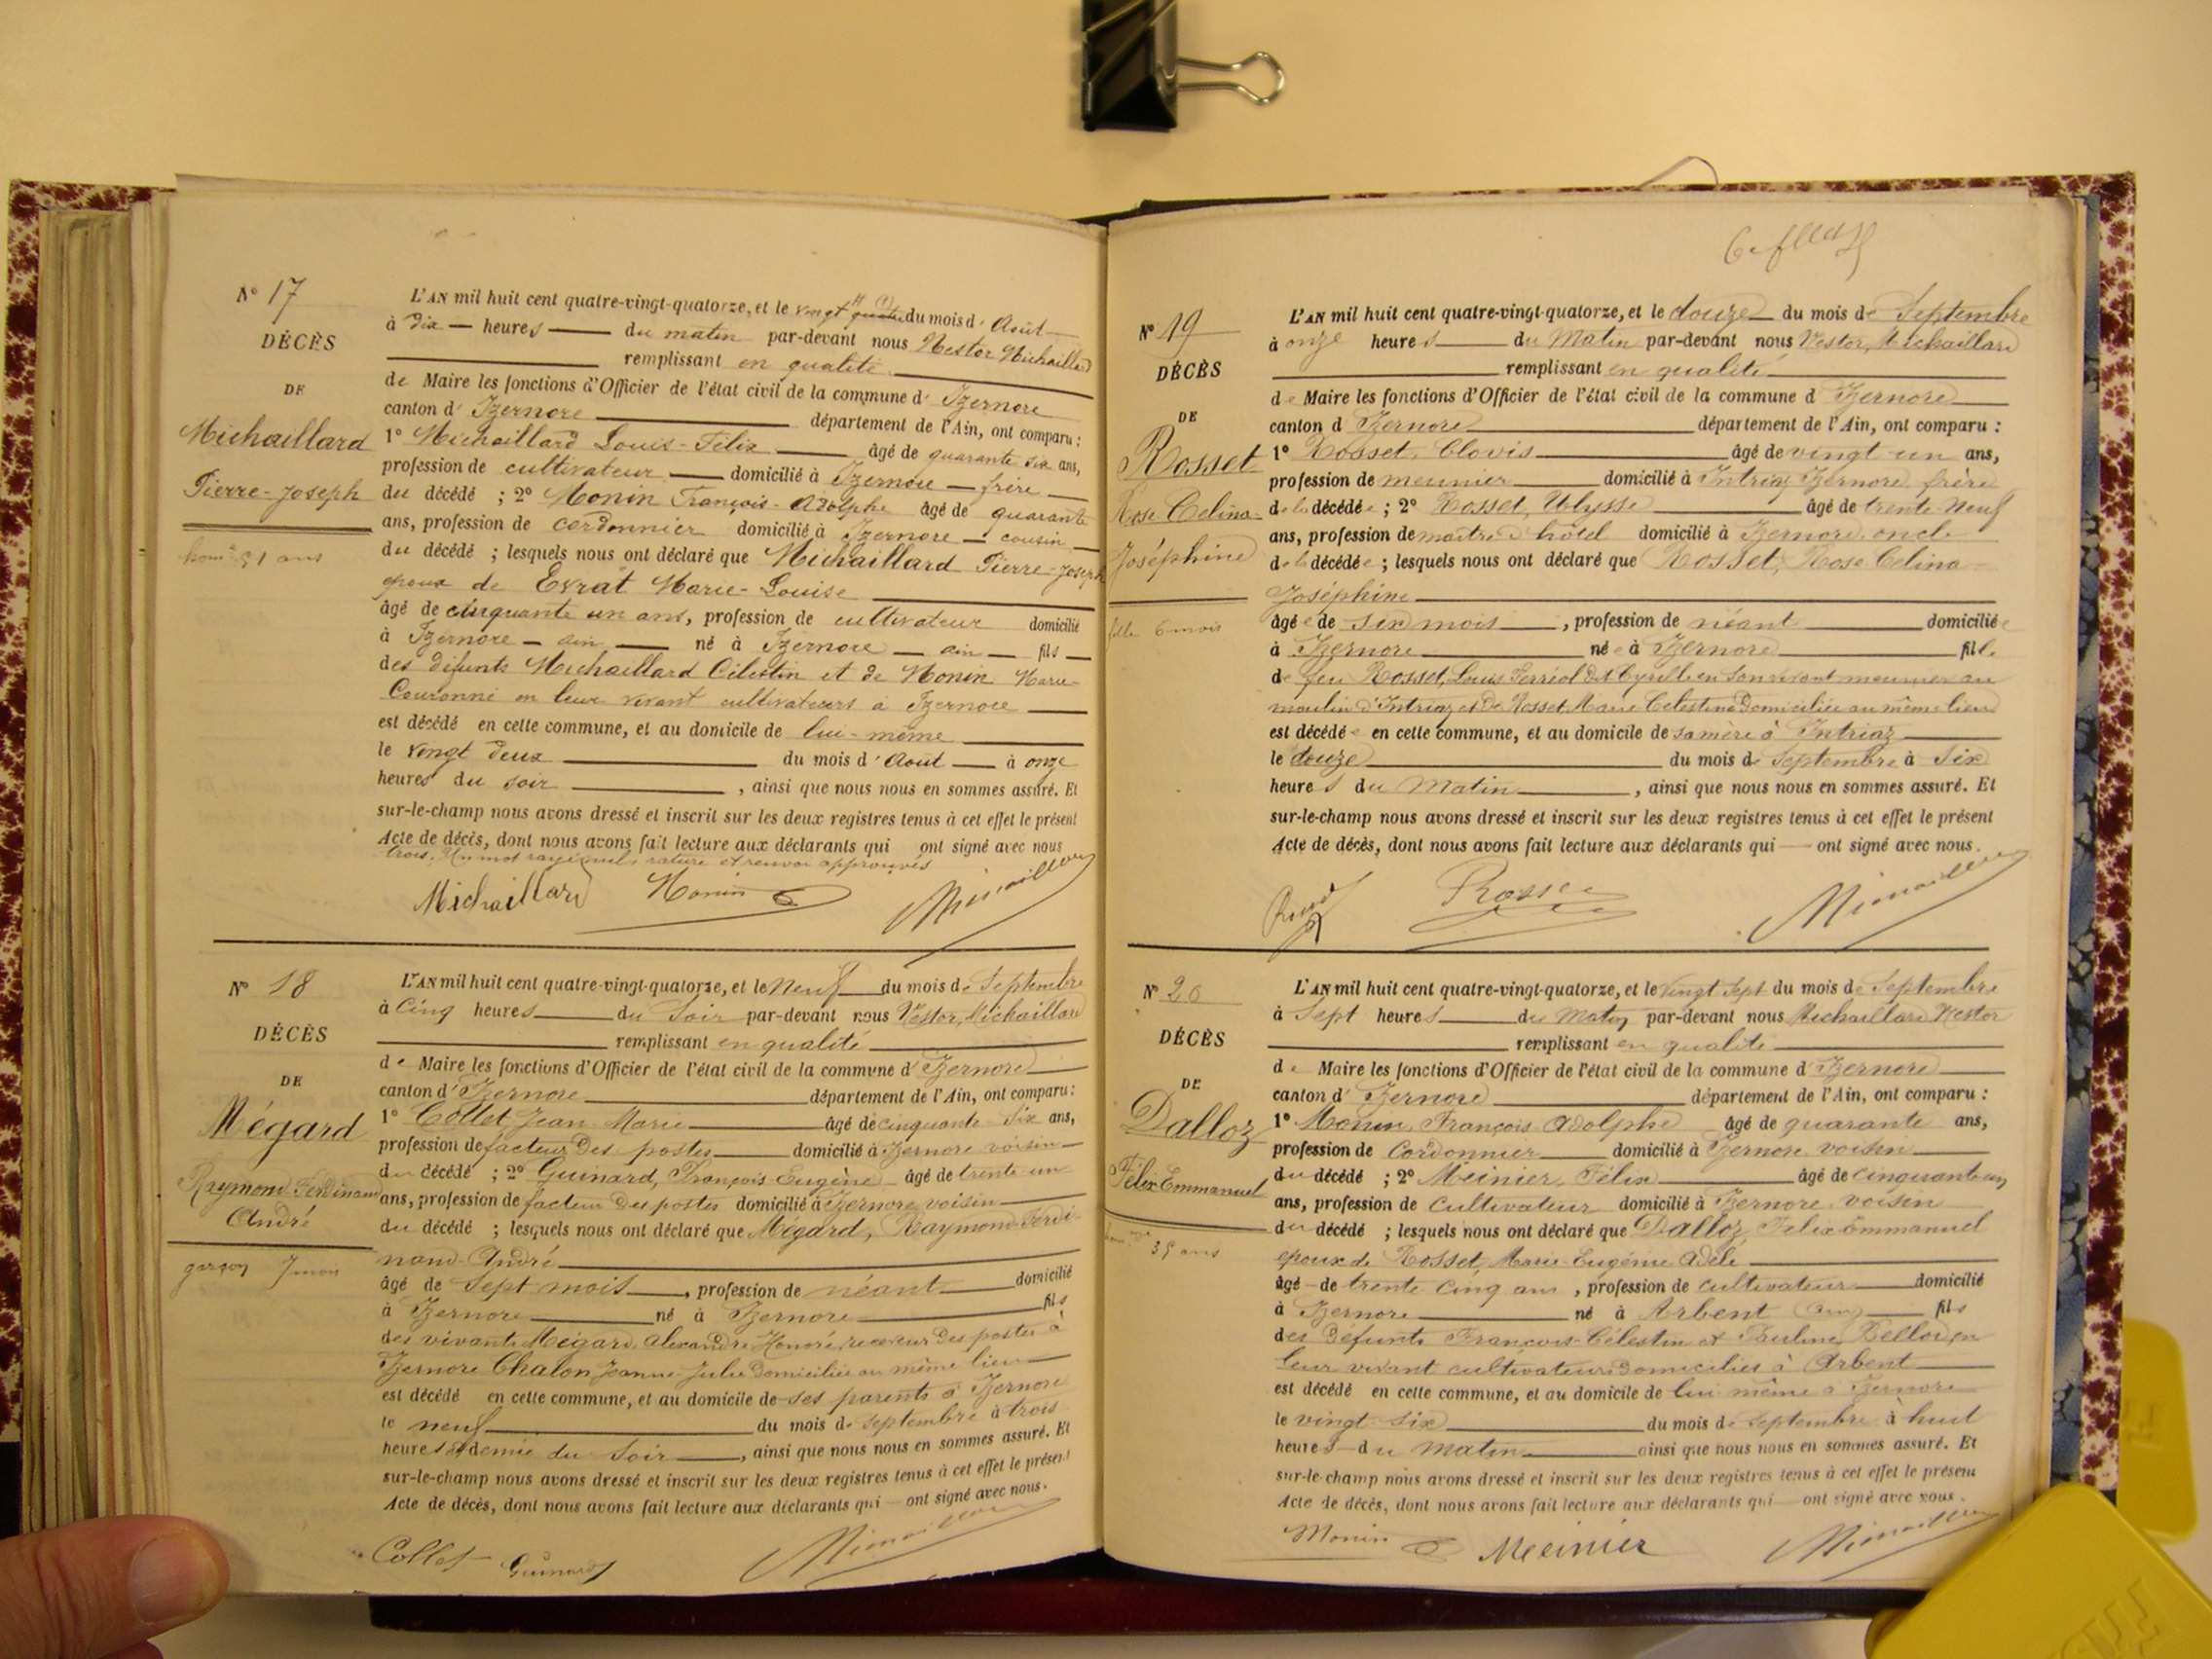 N° 17
DÉCÈS
DE
Michaillard
Pierre-Joseph
51 ans
L'AN mil huit cent quatre-vingt-quatorze, et le vingt quatre du mois d'Août
à dix heures du matin par-devant nous Nestor Michaillard
remplissant en qualité
de Maire les fonctions d'Officier de l'état civil de la commune d'Izernore
canton d'Izernore département de l'Ain, ont comparu :
1° Michaillard Louis-Félix âgé de quarante six ans,
profession de cultivateur domicilié à Izernore frère
du décédé ; 2° Monin François-Adolphe âgé de quarante
ans, profession de cordonnier domicilié à Izernore cousin
du décédé ; lesquels nous ont déclaré que Michaillard Pierre-Joseph
époux de Evrat Marie-Louise
âgé de cinquante un ans, profession de cultivateur domicilié
à Izernore ain né à Izernore ain fils
des défunts Michaillard Célestin et de Monin Marie-
Couronné en leur vivant cultivateurs à Izernore
est décédé en cette commune, et au domicile de lui-même
le vingt deux du mois d'Août à onze
heures du soir, ainsi que nous nous en sommes assuré. Et
sur-le-champ nous avons dressé et inscrit sur les deux registres tenus à cet effet le présent
Acte de décès, dont nous avons fait lecture aux déclarants qui ont signé avec nous
trois. Un mot rayé nul, rature et renvoi approuvés
Michaillard Monin Michaillard
N° 18
DÉCÈS
DE
Mégard
Raymond Ferdinand
André
garçon 7 mois
L'AN mil huit cent quatre-vingt-quatorze, et le Neuf du mois de Septembre
à Cinq heures du Soir par-devant nous Nestor, Michaillard
remplissant en qualité
de Maire les fonctions d'Officier de l'état civil de la commune d'Izernore
canton d'Izernore département de l'Ain, ont comparu :
1° Collet Jean Marie âgé de cinquante six ans,
profession de facteur des postes domicilié à Izernore voisin
du décédé ; 2° Guinard, François-Eugène âgé de trente un
ans, profession de facteur des postes domicilié à Izernore voisin
du décédé ; lesquels nous ont déclaré que Mégard, Raymond Ferdi-
nand André
âgé de Sept mois, profession de néant domicilié
à Izernore né à Izernore fils
des vivants Mégard, Alexandre Honoré, receveur des postes à
Izernore Chalon Jeanne-Julie domiciliée au même lieu
est décédé en cette commune, et au domicile de ses parents à Izernore
le neuf du mois de Septembre à trois
heures et demie du Soir, ainsi que nous nous en sommes assuré. Et
sur-le-champ nous avons dressé et inscrit sur les deux registres tenus à cet effet le présent
Acte de décès, dont nous avons fait lecture aux déclarants qui ont signé avec nous.
Collet Guinard Michaillard
N° 19
DÉCÈS
DE
Rosset
Rose Celina
Joséphine
fille 6 mois
L'AN mil huit cent quatre-vingt-quatorze, et le douze du mois de Septembre
à onze heures du Matin par-devant nous Nestor, Michaillard
remplissant en qualité
de Maire les fonctions d'Officier de l'état civil de la commune d'Izernore
canton d'Izernore département de l'Ain, ont comparu :
1° Rosset, Clovis âgé de vingt un ans,
profession de meunier domicilié à Intriaz Izernore frère
de la décédée ; 2° Rosset, Ulysse âgé de trente-neuf
ans, profession de maître d'hôtel domicilié à Izernore, oncle
de la décédée ; lesquels nous ont déclaré que Rosset, Rose Celina
Joséphine
âgée de six mois, profession de néant domiciliée
à Izernore née à Izernore fille
de feu Rosset, Louis Ferréol dit Cyrille en son vivant meunier au
moulin d'Intriaz et de Rosset, Marie Celestine domiciliée au même lieu
est décédée en cette commune, et au domicile de sa mère à Intriaz
le douze du mois de Septembre à Six
heures du Matin, ainsi que nous nous en sommes assuré. Et
sur-le-champ nous avons dressé et inscrit sur les deux registres tenus à cet effet le présent
Acte de décès, dont nous avons fait lecture aux déclarants qui ont signé avec nous.
Rosset Michaillard
N° 20
DÉCÈS
DE
Dalloz
Félix Emmanuel
35 ans
L'AN mil huit cent quatre-vingt-quatorze, et le Vingt Sept du mois de Septembre
à Sept heures du Matin par-devant nous Michaillard Nestor
remplissant en qualité
de Maire les fonctions d'Officier de l'état civil de la commune d'Izernore
canton d'Izernore département de l'Ain, ont comparu :
1° Monin, François Adolphe âgé de quarante ans,
profession de Cordonnier domicilié à Izernore voisin
du décédé ; 2° Meinier, Félix âgé de Cinquante un
ans, profession de Cultivateur domicilié à Izernore, voisin
du décédé ; lesquels nous ont déclaré que Dalloz, Felix Emmanuel
époux de Rosset, Marie-Eugénie Adèle
âgé de trente Cinq ans, profession de Cultivateur domicilié
à Izernore né à Arbent (ain) fils
des défunts François-Célestin et Pauline, en
leur vivant cultivateurs domiciliés à Arbent
est décédé en cette commune, et au domicile de lui même à Izernore
le vingt-six du mois de Septembre à huit
heures du Matin ainsi que nous nous en sommes assuré. Et
sur-le-champ nous avons dressé et inscrit sur les deux registres tenus à cet effet le présent
Acte de décès, dont nous avons fait lecture aux déclarants qui ont signé avec nous.
Monin Meinier Michaillard